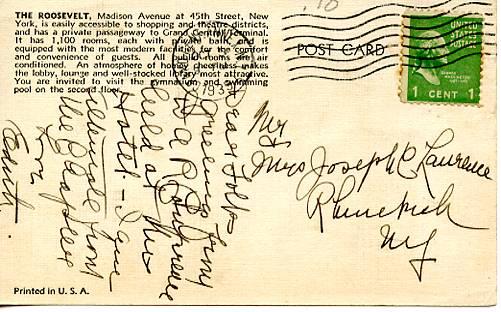 THE ROOSEVELT, Madison Avenue at 45th Street, New
York, is easily accessible to shopping and theatre districts,
and has a private passageway to Grand Central Terminal.
It has 1,100 rooms, each with private bath, and is
equipped with the most modern facilities for the comfort
and convenience of guests. All public rooms are air
conditioned. An atmosphere of homey cheeriness makes
the lobby, lounge and well-stocked library most attractive.
You are invited to visit the gymnasium and swimming
pool on the second floor.
POST CARD
UNITED
STATES
POSTAGE
1 CENT 1
Dear Folks
Greetings from
D.A.R. Conference
held at this
Hotel - I am
from
the Chapter
Love
Edith.
Mr
Mrs Joseph R Laurence
Rhinebeck
NY
Printed in U. S. A.